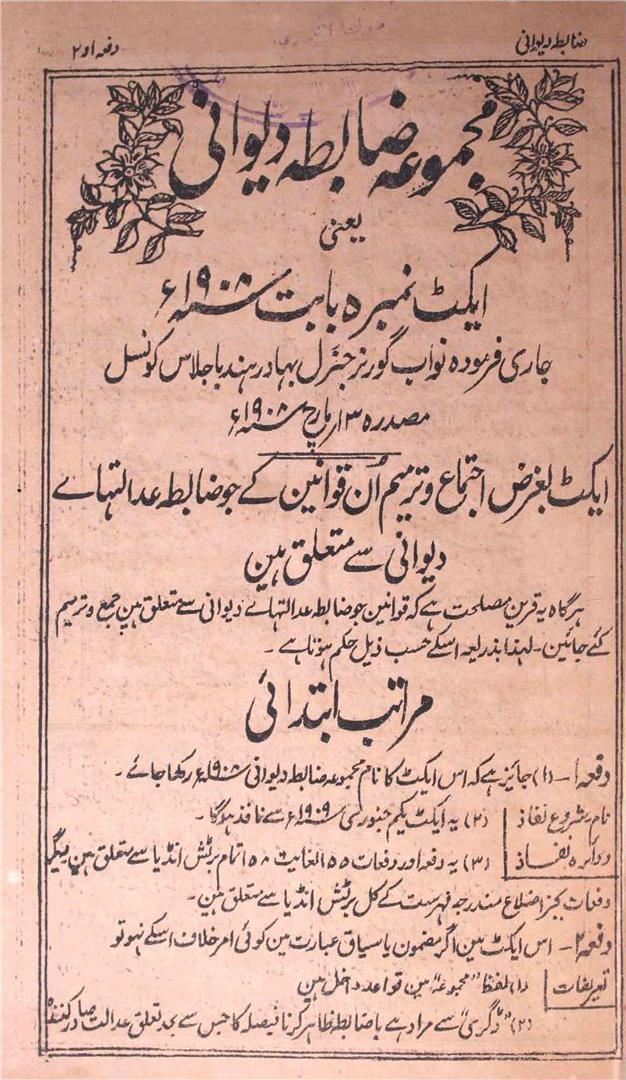 ضابطہ دیوانی
دفعہ ۱و۲
مجموعہ ضابطہ دیوانی
یعنی
ایکٹ نمبر ۵ بابت سنہ ۱۹۰۸ء
جاری فرمودہ نواب گورنر جنرل بہادر ہند با جلاس کونسل
مصدرہ مارچ سنہ ۱۹۰۸ء
ایکٹ بغرض اجتماع و ترمیم اُن قوانین کے جو ضابطہ عدالتہاے
دیوانی سے متعلق ہین
ہرگاہ یہ قرین مصلحت ہے کہ قوانین جو ضابطہ عدالتہاے دیوانی سے متعلق ہین جمع و ترمیم
کئے جائین۔ لہذا بذریعہ اسکے حسب ذیل حکم ہوتا ہے۔
مراتب ابتدائی
دفعہ ۱۔ (۱) جایز ہے کہ اس ایکٹ کا نام مجموعہ ضابطہ دیوانی سنہ ۱۹۰۸ء رکھا جائے۔
نام و شروع نفاذ
(۲) یہ ایکٹ یکم جنوری سنہ ۱۹۰۹ء سے نافذ ہوگا۔
و دائرہ نفاذ
(۳) یہ دفعہ اور دفعات ۱۵۵ لغایت ۱۵۸ تمام برٹش انڈیا سے متعلق ہین دیگر
دفعات بجز اضلاع مندرجہ فہرست کے کل برٹش انڈیا سے متعلق ہین۔
دفعہ ۲۔ اس ایکٹ مین اگر مضمون یا سیاق عبارت مین کوئی امر خلاف اسکے نہو تو
تعریفات
(۱) لفظ "مجموعہ" مین قواعد داخل ہین
(۲) "ڈگری" سے مراد ہے باضابطہ ظاہر کرنا فیصلہ کا جس سے بہ تعلق عدالت صادر کنندہ